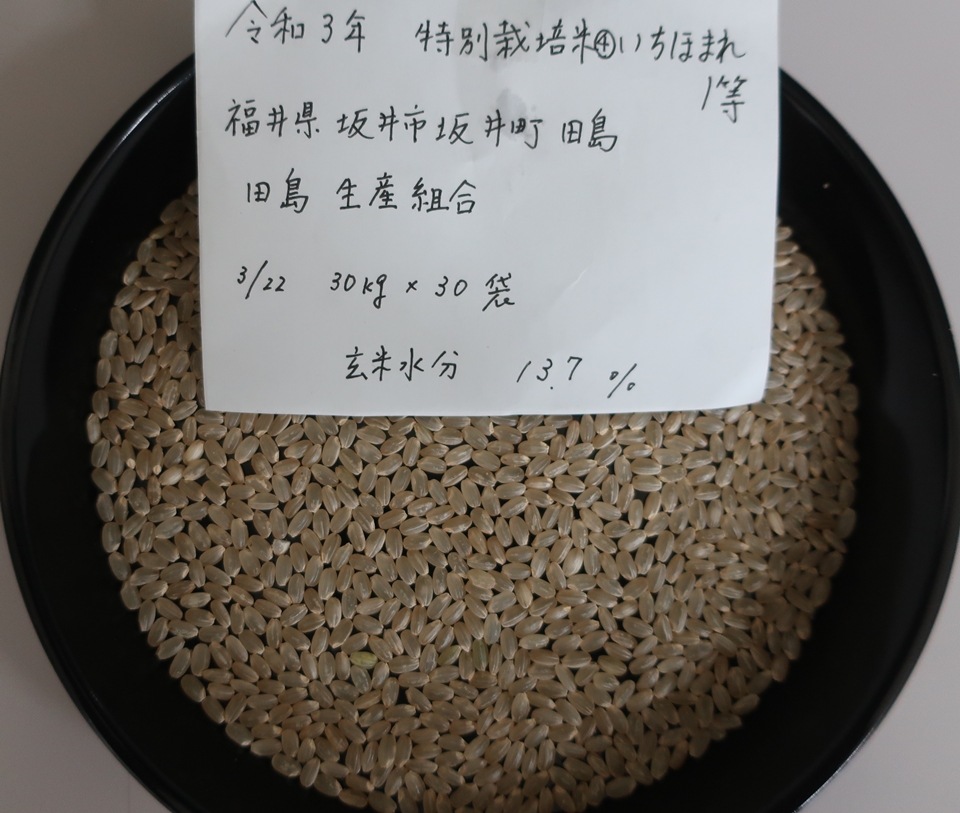 令和3年 特別栽培米④いちほまれ
1等
福井県 坂井市坂井町 田島
田島 生産組合
3/22 30kg × 30 袋
玄米水分 13.7 %